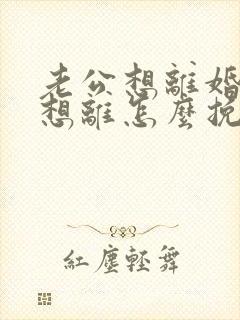 老公想離婚
想離怎麼挽
紅塵輕舞